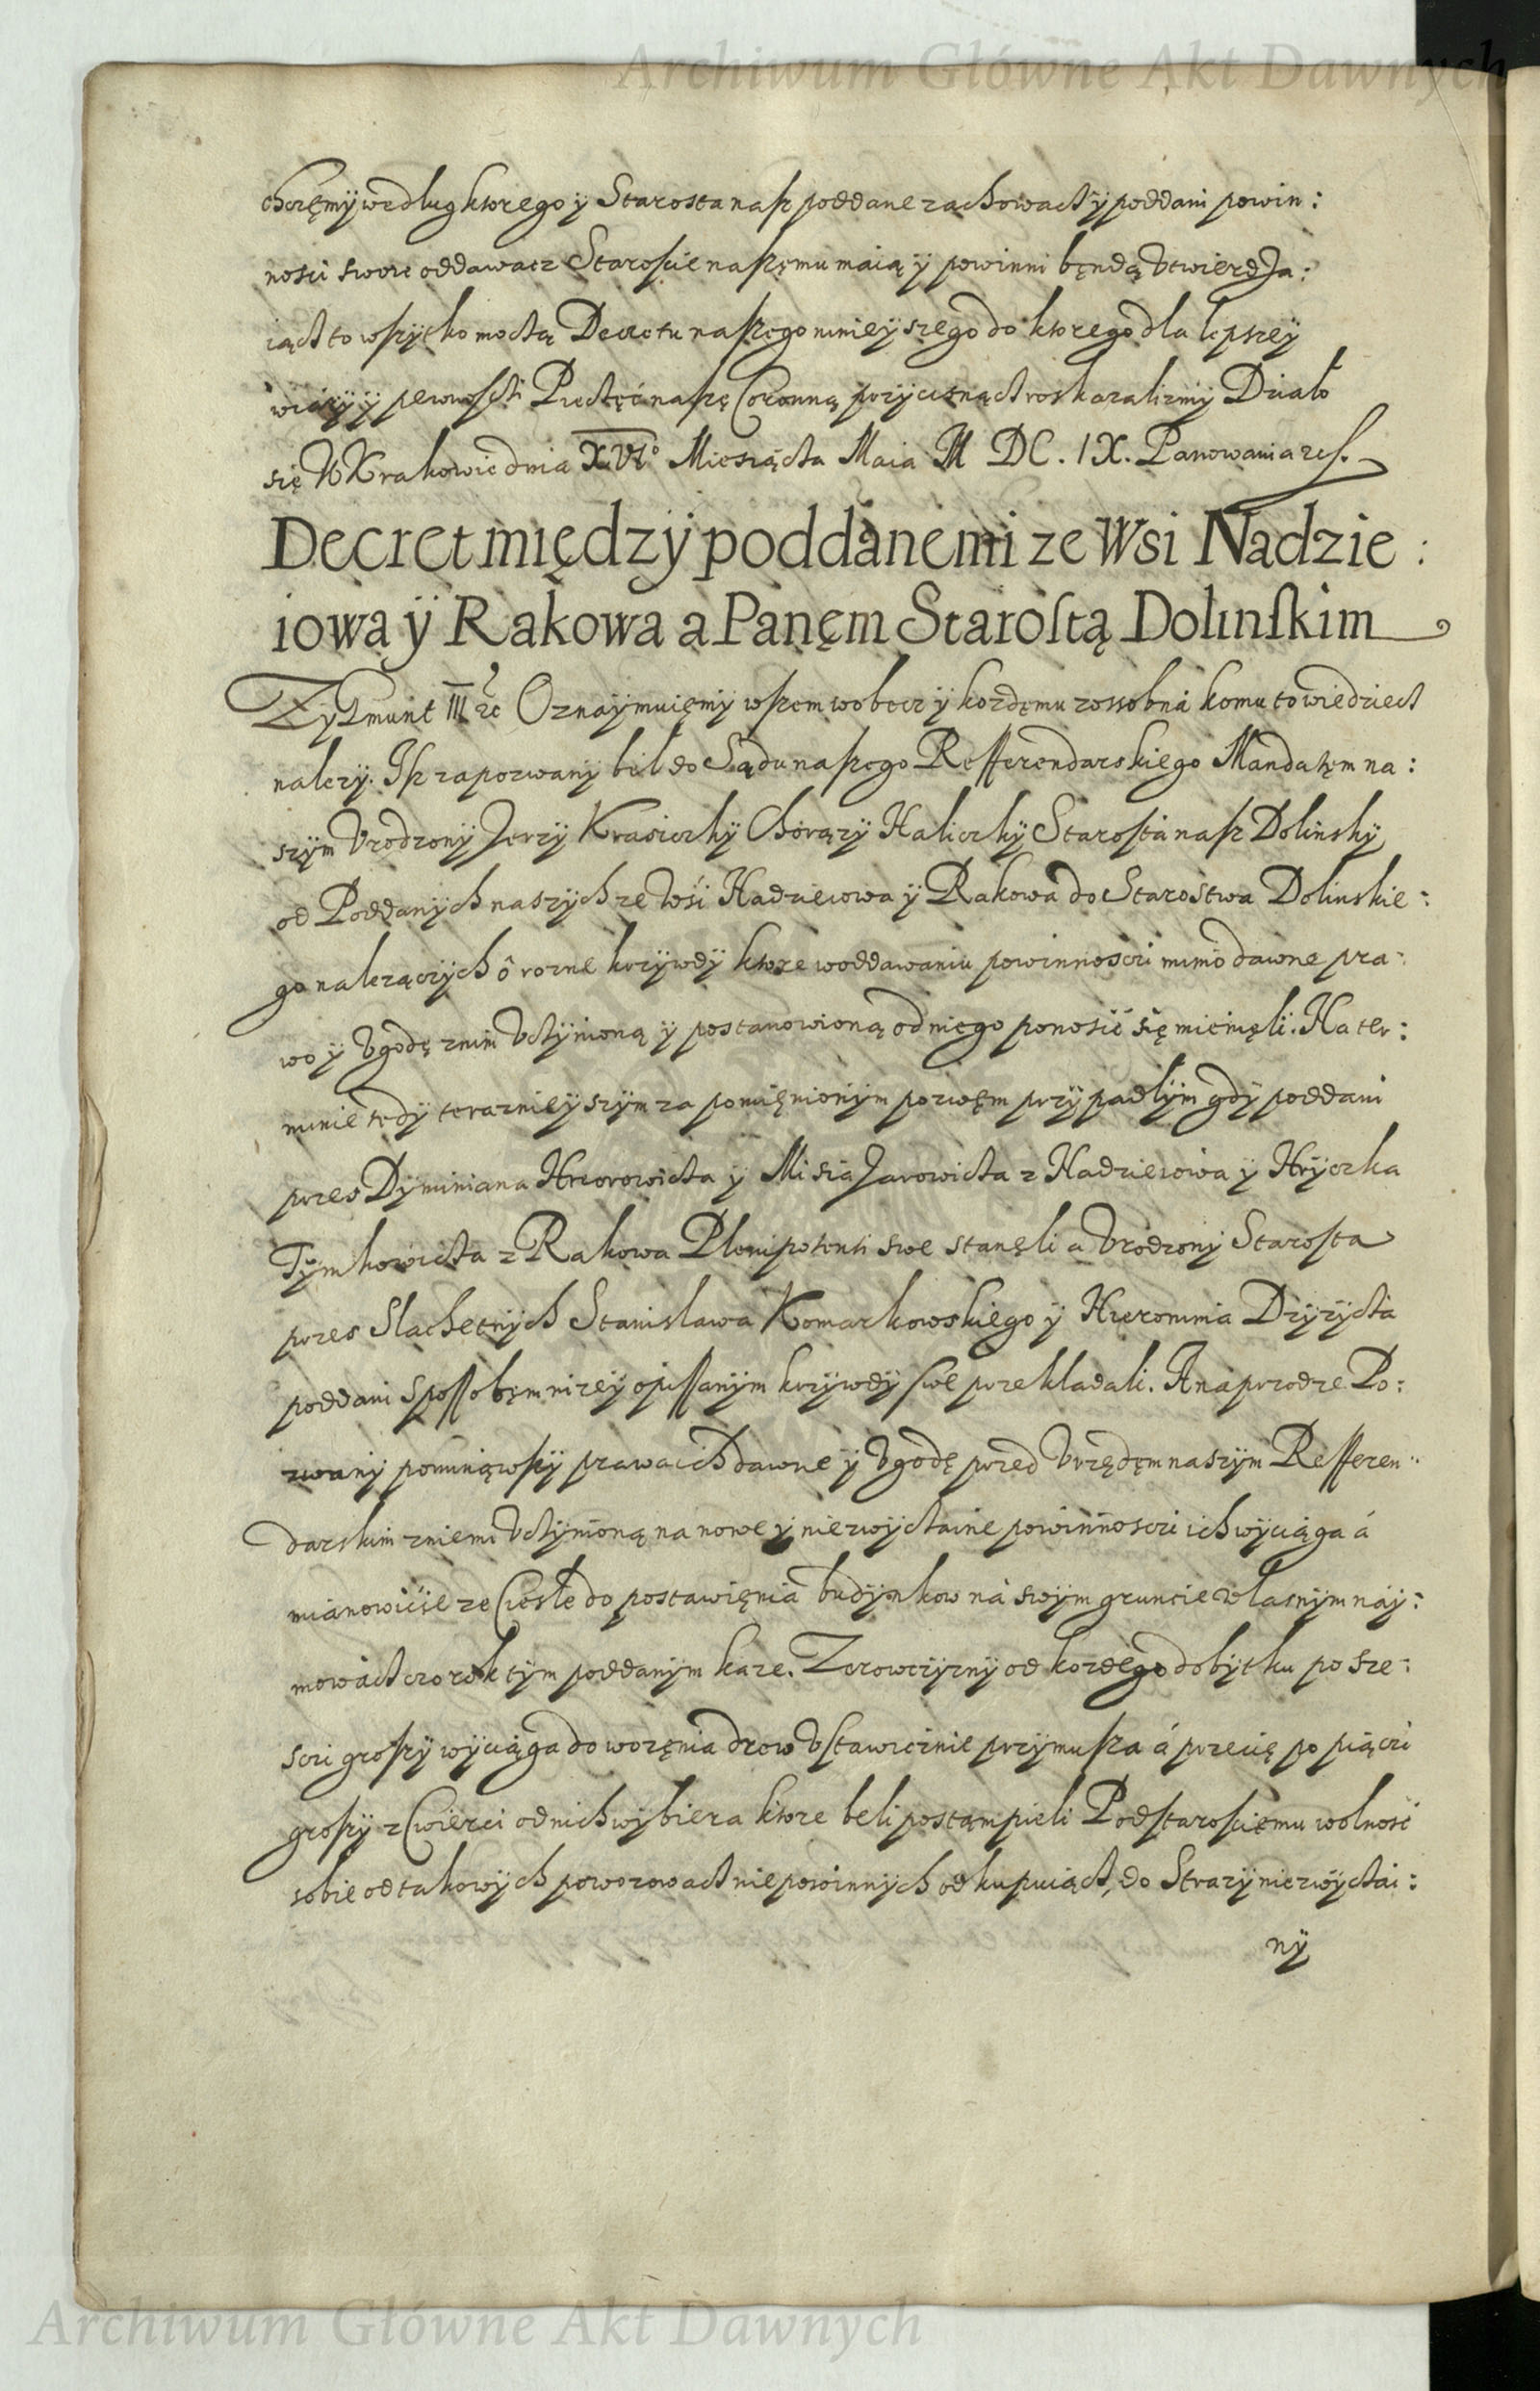 Archiwum Główne Akt Dawnych
chcęmy według ktorego y Starosta nasz poddane zachowacz y poddani powin:
nosci swoie oddawacz Staroscie naszęmu maią y powinni bęndą vtwierdza:
iącz to wszytko moczą Decretu naszego ninieyszego do ktorego dla lepszey
wiary y pewnosczi Pieczęć naszę Coronną przycisnącz roskazalismy Działo
się W Krakowie dnia XVIº Miesiącza Maia M DC. IX. Panowania zcs.
Decret między poddanemi ze Wsi Nadzie:
iowa y Rakowa a Panęm Starostą Dolinskim
Zygmunt III zc Oznaymuięmy wszem wobecz y kozdęmu zossobna komu to wiedziecz
nalezy. Isz zapozwany beł do Sądu naszego Refferendarskiego Mandatęm na:
szym Vrodzony Jerzy Krasiczky Chorązy Haliczky Starosta nasz Dolinsky
od Poddanych naszych ze Wsi Nadzieiowa y Rakowa do Starostwa Dolinskie:
go nalezączych o rozne krzywdy ktore w oddawaniu powinnosczi mimo dawne pra:
wo y Vgodę znim Vczynioną y postanowioną od niego ponosić się mienięli. Na ter:
minie tedy teraznieyszym za pomięnionym pozwęm przypadłym gdy poddani
przes Dyminiana Hrzorowicza y Misia Jarowicza z Nadzieiowa y Hryczka
Tymkowicza z Rakowa Plenipotenti swe stanęli a Vrodzony Starosta
przes Slachetnych Stanisława Komarkowskiego y Hieronima Dryzycza
poddani spossobęm nizey opissanym krzywdy swe przekladali. A naprzod ze Po:
zwany pominąwszy prawa ich dawne y Vgodę przed Vrzędęm naszym Refferen:
darskim zniemi Vczynioną na nowe y niezwyczaine powinnosczi ich wyciąga á
mianowicie ze Ciesle do postawięnia budynkow ná swym gruncie własnym náy:
mowácz czo rok tym poddanym kaze. Zerowczyzny od kozdego dobytku po sze:
sczi groszy wyciąga do wozęnia drow Vstawicznie przymusza á przecię po piączi
groszy z Cwierci od nich wybiera ktore beli postąmpieli Podstaroscięmu wolnosć
sobie od takowych powozowacz niepowinnych odkupuiącz, do Strazy niezwyczai:
ny
Archiwum Główne Akt Dawnych